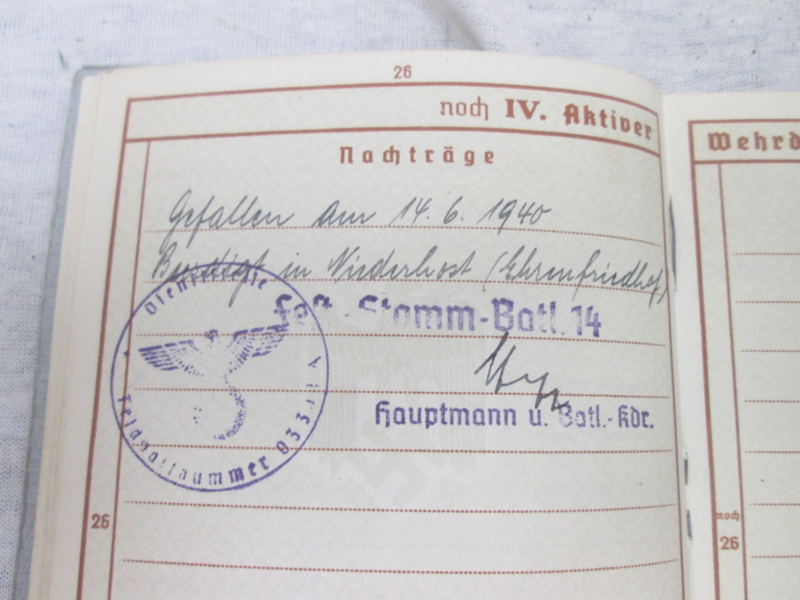 26
noch IV. Aktiver
Wehrd
Nachträge
Gefallen am 14. 6. 1940
Beerdigt in Niederhost (Ehrenfriedhof)
Dienststelle
Stamm-Batl. 14
Hauptmann u. Batl.-Kdr.
Feldpostnummer
26
noch
26